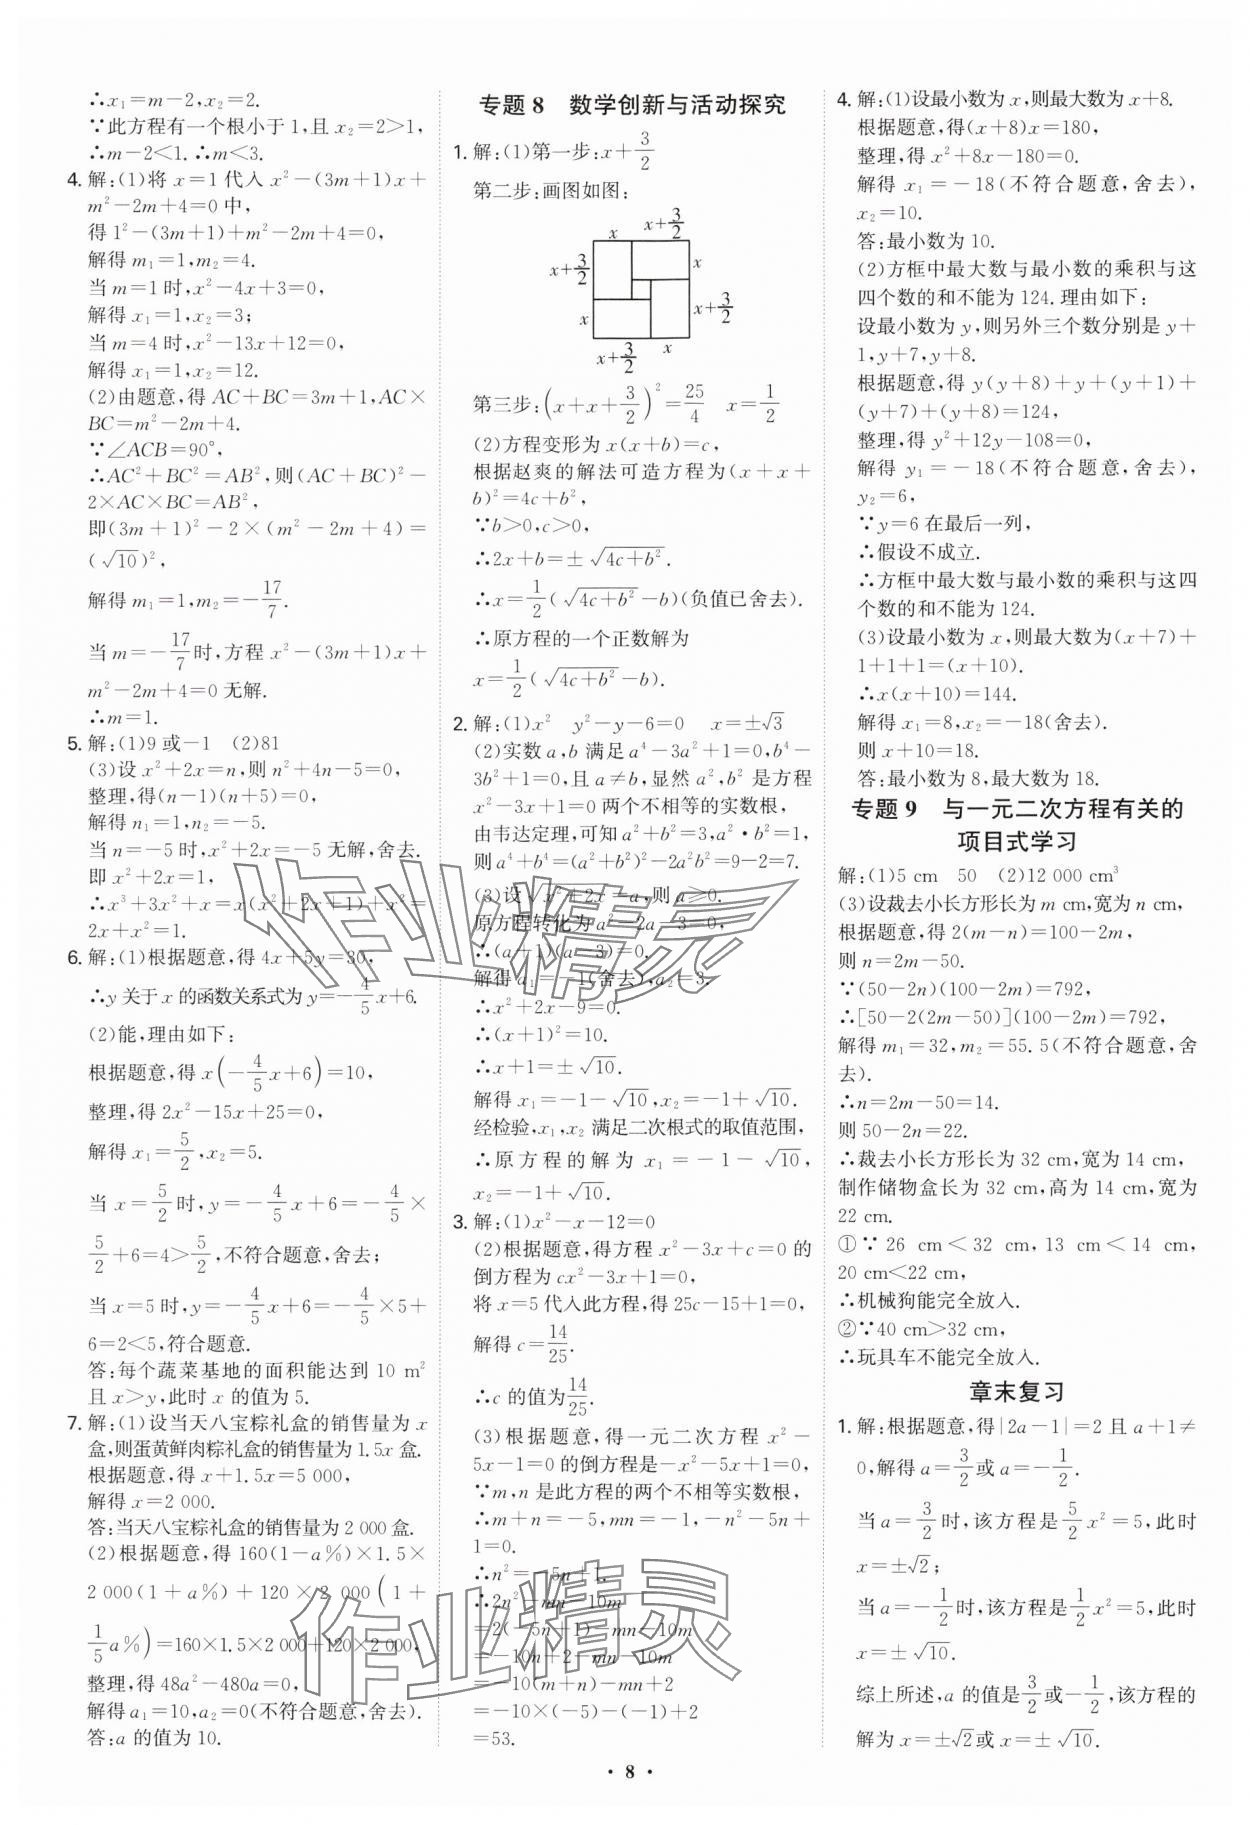 ∴x₁=m-2,x₂=2.
∵此方程有一个根小于1,且x₂=2>1,
∴m-2<1.∴m<3.
4. 解:(1)将x=1代入x²-(3m+1)x+
m²-2m+4=0中,
得1²-(3m+1)+m²-2m+4=0,
解得m₁=1,m₂=4.
当m=1时,x²-4x+3=0,
解得x₁=1,x₂=3;
当m=4时,x²-13x+12=0,
解得x₁=1,x₂=12.
(2)由题意,得AC+BC=3m+1,AC×
BC=m²-2m+4.
∵∠ACB=90°,
∴AC²+BC²=AB²,则(AC+BC)²-
2×AC×BC=AB²,
即(3m+1)²-2×(m²-2m+4)=
(√10)²,
解得m₁=1,m₂=-17/7.
当m=-17/7时,方程x²-(3m+1)x+
m²-2m+4=0无解.
∴m=1.
5. 解:(1)9或-1 (2)81
(3)设x²+2x=n,则n²+4n-5=0,
整理,得(n-1)(n+5)=0.
解得n₁=1,n₂=-5.
当n=-5时,x²+2x=-5无解,舍去.
即x²+2x=1,
∴x³+3x²+x=x(x²+2x+1)+x²=
2x+x²=1.
6. 解:(1)根据题意,得4x+5y=30,
∴y关于x的函数关系式为y=-4/5x+6.
(2)能,理由如下:
根据题意,得x(-4/5x+6)=10,
整理,得2x²-15x+25=0,
解得x₁=5/2,x₂=5.
当x=5/2时,y=-4/5x+6=-4/5×
5/2+6=4>5/2,不符合题意,舍去;
当x=5时,y=-4/5x+6=-4/5×5+
6=2<5,符合题意.
答:每个蔬菜基地的面积能达到10 m²
且x>y,此时x的值为5.
7. 解:(1)设当天八宝粽礼盒的销售量为x
盒,则蛋黄鲜肉粽礼盒的销售量为1.5x盒.
根据题意,得x+1.5x=5 000,
解得x=2 000.
答:当天八宝粽礼盒的销售量为2 000盒.
(2)根据题意,得160(1-a%)×1.5×
2 000(1+a%)+120×2 000(1+
1/5a%)=160×1.5×2 000+120×2 000,
整理,得48a²-480a=0,
解得a₁=10,a₂=0(不符合题意,舍去).
答:a的值为10.
专题8 数学创新与活动探究
1. 解:(1)第一步:x+3/2
第二步:画图如图:
x x+3/2
x+3/2 x
x x+3/2
x+3/2 x
第三步:(x+x+3/2)²=25/4 x=1/2
(2)方程变形为x(x+b)=c,
根据赵爽的解法可造方程为(x+x+
b)²=4c+b²,
∵b>0,c>0,
∴2x+b=±√(4c+b²).
∴x=1/2(√(4c+b²)-b)(负值已舍去).
∴原方程的一个正数解为
x=1/2(√(4c+b²)-b).
2. 解:(1)x² y²-y-6=0 x=±√3
(2)实数a,b满足a⁴-3a²+1=0,b⁴-
3b²+1=0,且a≠b,显然a²,b²是方程
x²-3x+1=0两个不相等的实数根,
由韦达定理,可知a²+b²=3,a²·b²=1,
则a⁴+b⁴=(a²+b²)²-2a²b²=9-2=7.
(3)设√(x²+2x)=a,则a≥0.
原方程转化为a²-2a-3=0,
∴(a+1)(a-3)=0.
解得a₁=-1(舍去),a₂=3.
∴x²+2x-9=0.
∴(x+1)²=10.
∴x+1=±√10.
解得x₁=-1-√10,x₂=-1+√10.
经检验,x₁,x₂满足二次根式的取值范围,
∴原方程的解为x₁=-1-√10,
x₂=-1+√10.
3. 解:(1)x²-x-12=0
(2)根据题意,得方程x²-3x+c=0的
倒方程为cx²-3x+1=0,
将x=5代入此方程,得25c-15+1=0,
解得c=14/25.
∴c的值为14/25.
(3)根据题意,得一元二次方程x²-
5x-1=0的倒方程是-x²-5x+1=0,
∵m,n是此方程的两个不相等实数根,
∴m+n=-5,mn=-1,-n²-5n+
1=0.
∴n²=-5n+1.
∴2n²-mn-10m
=2(-5n+1)-mn-10m
=-10n+2-mn-10m
=-10(m+n)-mn+2
=-10×(-5)-(-1)+2
=53.
4. 解:(1)设最小数为x,则最大数为x+8.
根据题意,得(x+8)x=180,
整理,得x²+8x-180=0.
解得x₁=-18(不符合题意,舍去),
x₂=10.
答:最小数为10.
(2)方框中最大数与最小数的乘积与这
四个数的和不能为124.理由如下:
设最小数为y,则另外三个数分别是y+
1,y+7,y+8.
根据题意,得y(y+8)+y+(y+1)+
(y+7)+(y+8)=124,
整理,得y²+12y-108=0,
解得y₁=-18(不符合题意,舍去),
y₂=6,
∵y=6在最后一列,
∴假设不成立.
∴方框中最大数与最小数的乘积与这四
个数的和不能为124.
(3)设最小数为x,则最大数为(x+7)+
1+1+1=(x+10).
∴x(x+10)=144.
解得x₁=8,x₂=-18(舍去).
则x+10=18.
答:最小数为8,最大数为18.
专题9 与一元二次方程有关的
项目式学习
解:(1)5 cm 50 (2)12 000 cm³
(3)设裁去小长方形长为m cm,宽为n cm,
根据题意,得2(m-n)=100-2m,
则n=2m-50.
∵(50-2n)(100-2m)=792,
∴[50-2(2m-50)](100-2m)=792,
解得m₁=32,m₂=55.5(不符合题意,舍
去).
∴n=2m-50=14.
则50-2n=22.
∴裁去小长方形长为32 cm,宽为14 cm,
制作储物盒长为32 cm,高为14 cm,宽为
22 cm.
①∵26 cm<32 cm,13 cm<14 cm,
20 cm<22 cm,
∴机械狗能完全放入.
②∵40 cm>32 cm,
∴玩具车不能完全放入.
章末复习
1. 解:根据题意,得|2a-1|=2且a+1≠
0,解得a=3/2或a=-1/2.
当a=3/2时,该方程是5/2x²=5,此时
x=±√2;
当a=-1/2时,该方程是1/2x²=5,此时
x=±√10.
综上所述,a的值是3/2或-1/2,该方程的
解为x=±√2或x=±√10.
· 8 ·
作业精灵
作业精灵